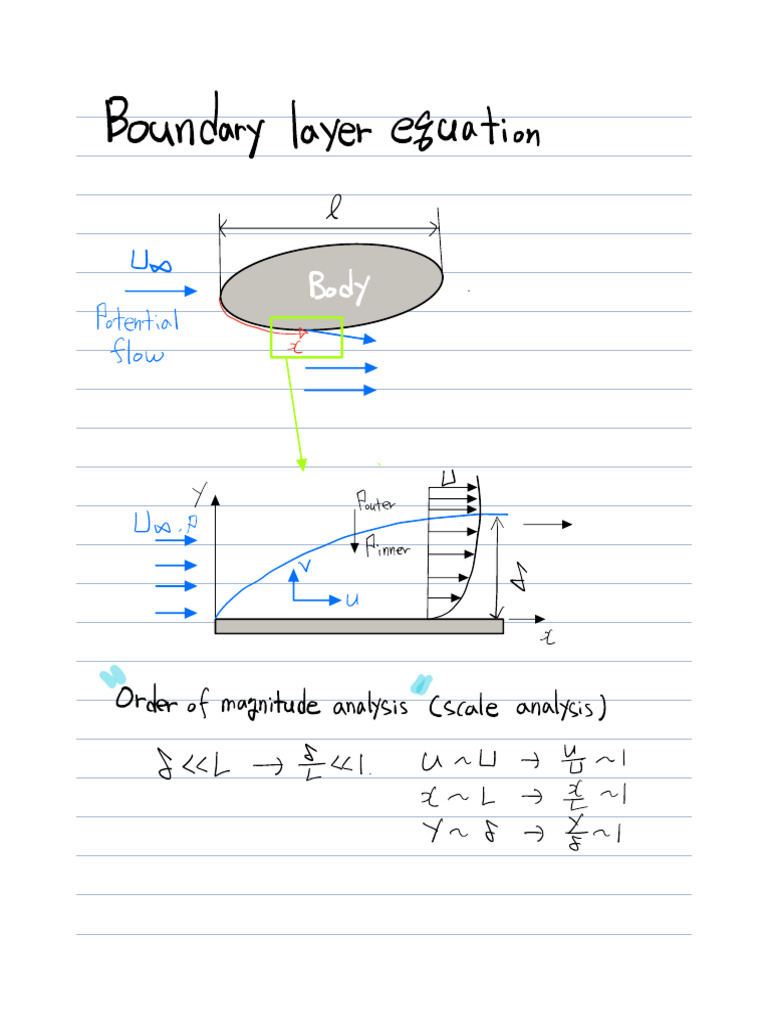 Boundary layer equation
l
U∞
Body
Potential
flow
x
U
y
Pouter
U∞, P
Pinner
v
δ
u
x
"Order of magnitude analysis" (scale analysis)
δ << L → δ/L << 1. u ~ U → u/U ~ 1
x ~ L → x/L ~ 1
y ~ δ → y/δ ~ 1